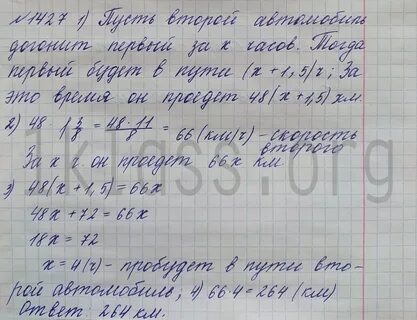 №1427 1) Пусть второй автомобиль
догонит первый за x часов. Тогда
первый будет в пути (x+1,5)ч; За
это время он проедет 48(x+1,5) км.
2) 48 · 1 3/8 = 48·11/8 = 66 (км/ч) - скорость
второго
За x ч он проедет 66x км.
3) 48(x+1,5) = 66x
48x + 72 = 66x
18x = 72
x = 4(ч) - пробудет в пути вто-
рой автомобиль; 4) 66·4 = 264 (км)
Ответ: 264 км.
klass.org